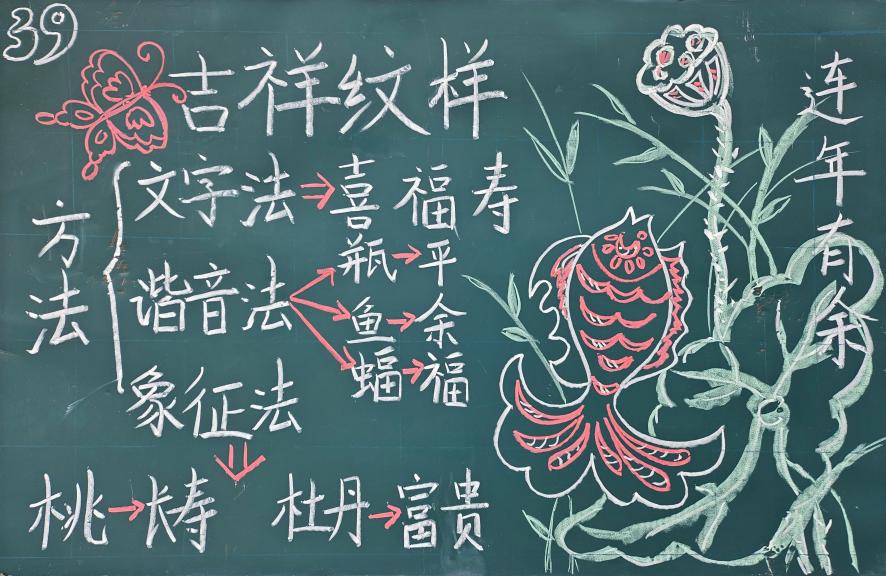 39
吉祥纹样
方法
文字法→喜 福 寿
谐音法
瓶→平
鱼→余
蝠→福
象征法
桃→长寿 杜丹→富贵
连年有余